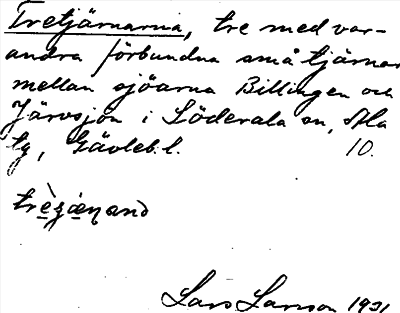 Tretjärnarna, tre med var-
andra förbundna små tjärnar
mellan sjöarna Billingen och
Järvsjön i Söderala sn, Ala
tg, Gävleb.l. 10.
Lars Larson 1931